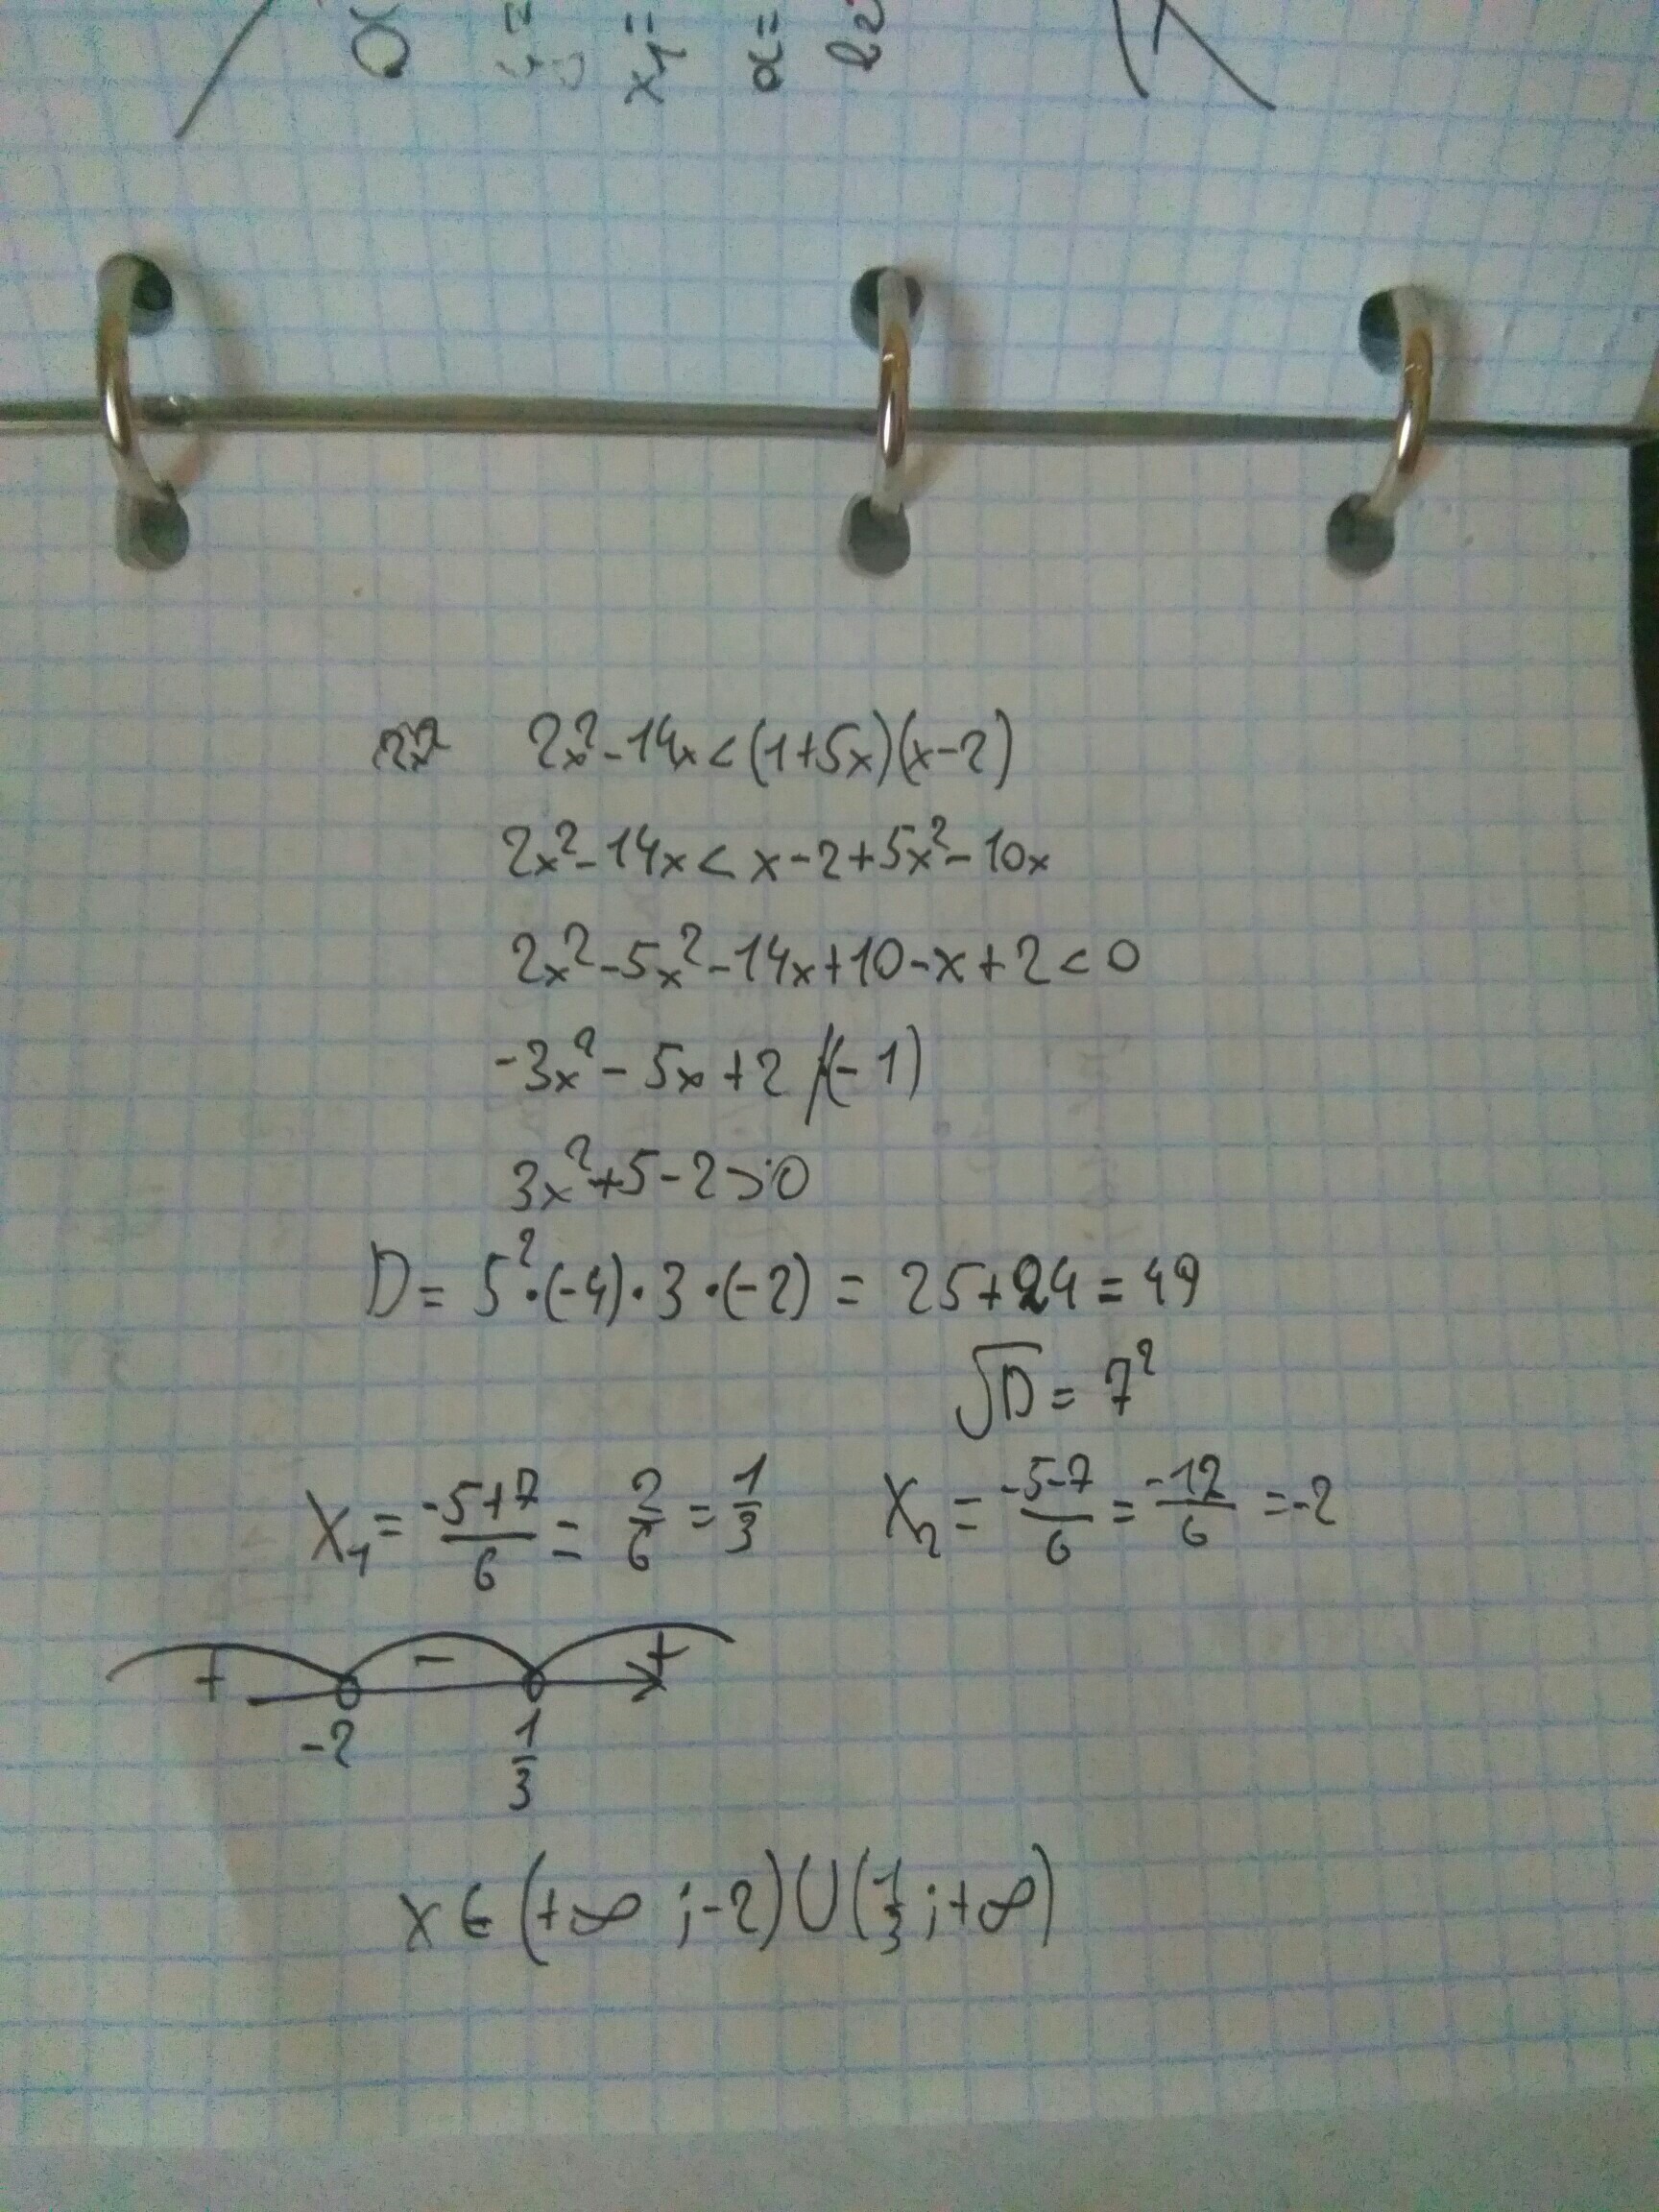 x₁=
a=
2x² - 14x < (1+5x)(x-2)
2x² - 14x < x - 2 + 5x² - 10x
2x² - 5x² - 14x + 10 - x + 2 < 0
-3x² - 5x + 2 /(-1)
3x² + 5 - 2 > 0
D = 5² · (-4) · 3 · (-2) = 25 + 24 = 49
√D = 7²
X₁ = (-5+7)/6 = 2/6 = 1/3 X₂ = (-5-7)/6 = -12/6 = -2
+ - +
-2 1/3
x ∈ (+∞ ; -2) ∪ (1/3 ; +∞)